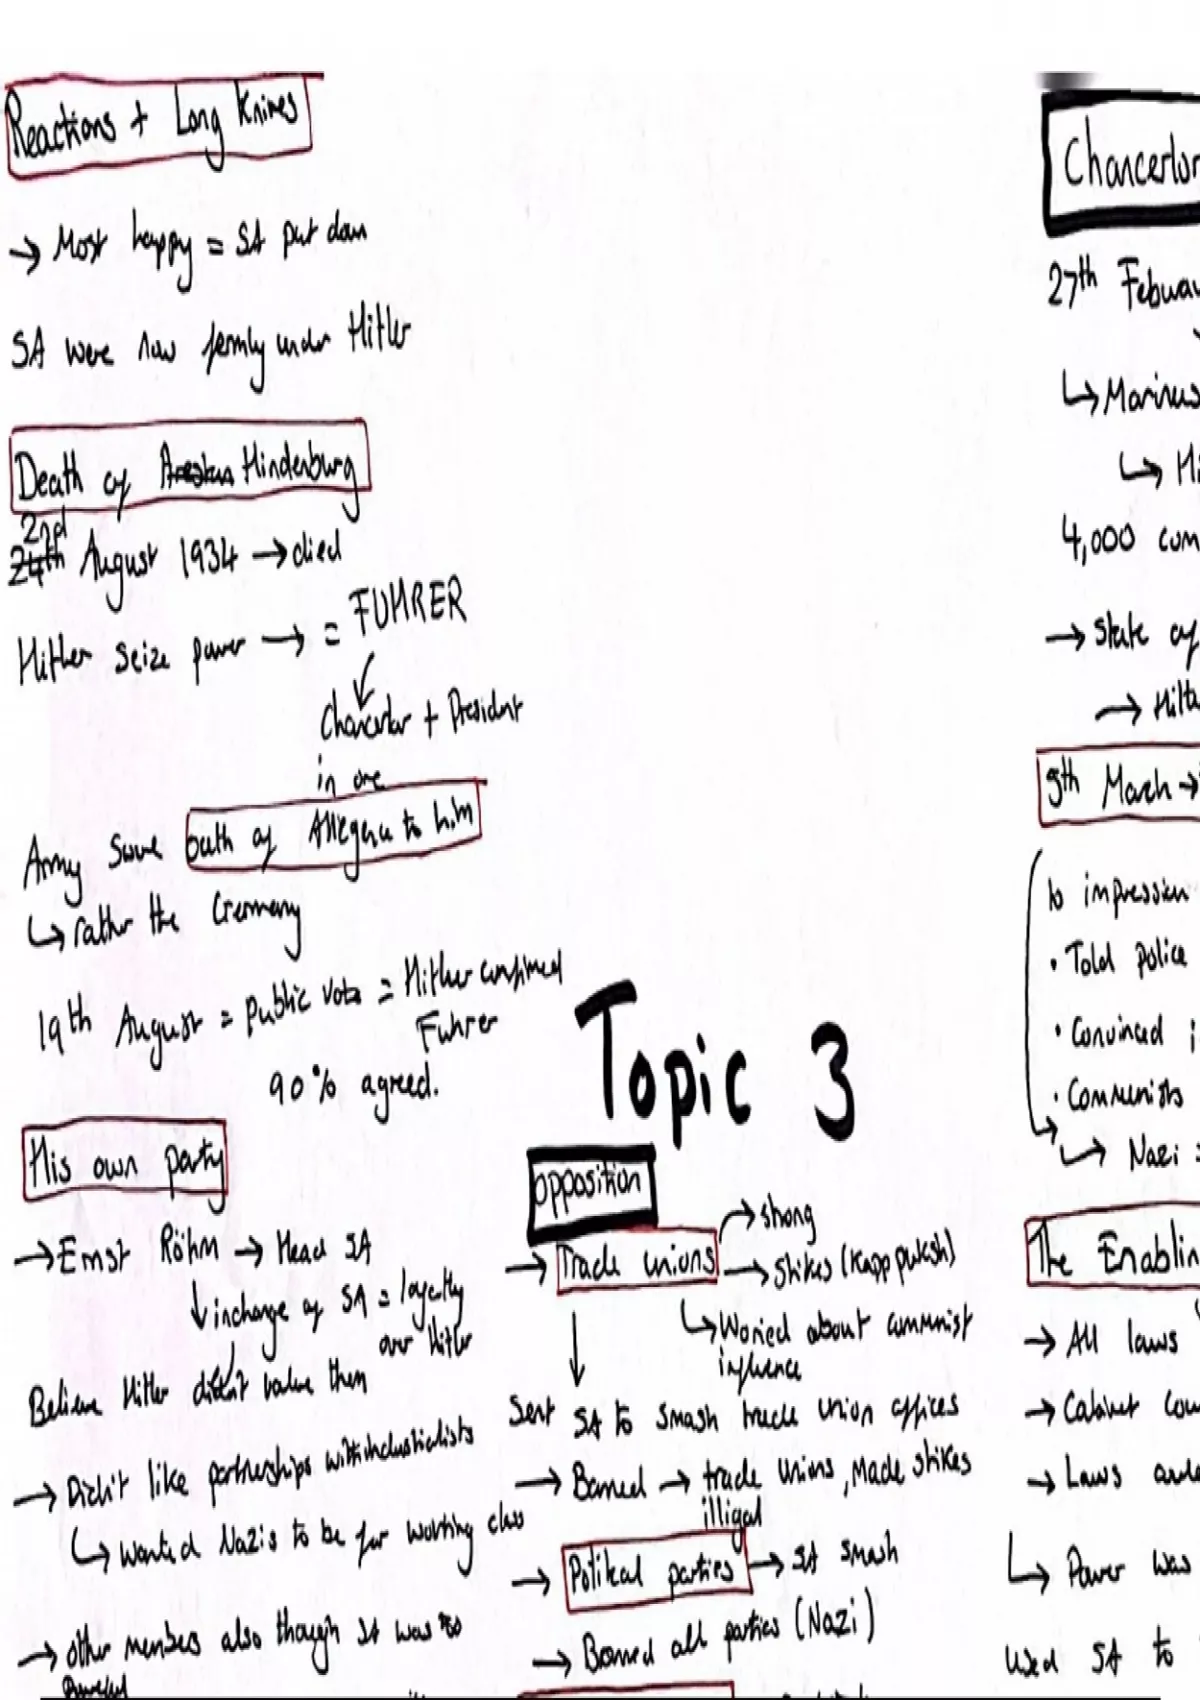 Reactions + Long Knives
→ Most happy = SA put down
SA were now firmly under Hitler
Death of Hindenburg
2nd
24th August 1934 → died
Hitler seize power → = FUHRER
Chancerlor + President
in one
Army swore oath of Allegence to him
↳ rather the Germany
19th August = public vote = Hitler confirmed
Fuhrer
90% agreed.
His own party
→ Ernst Röhm → Head SA
↓ incharge of SA = loyalty
over Hitler
Believe Hitler didn't value them
→ Didn't like partnerships with industialists
↳ wanted Nazis to be for working class
→ other members also though SA was too
Powerful
Topic 3
opposition
→ Trade unions → strong
→ Strikes (Kapp putsch)
↳ Woried about communist
influence
Sent SA to smash trade union offices
→ Banned → trade unions, Made strikes
illigal
→ Politkal parties → SA smash
→ Banned all parties (Nazi)
Chancerlor
27th Febuwa
↳ Marinus
↳ Hi
4,000 com
→ State of
→ Hitle
5th March →
to impression
• Told police
• Convinced i
• Communists
↳ Nazi s
The Enablin
→ All laws
→ Cabinet cou
→ Laws
↳ Power was
Used SA to